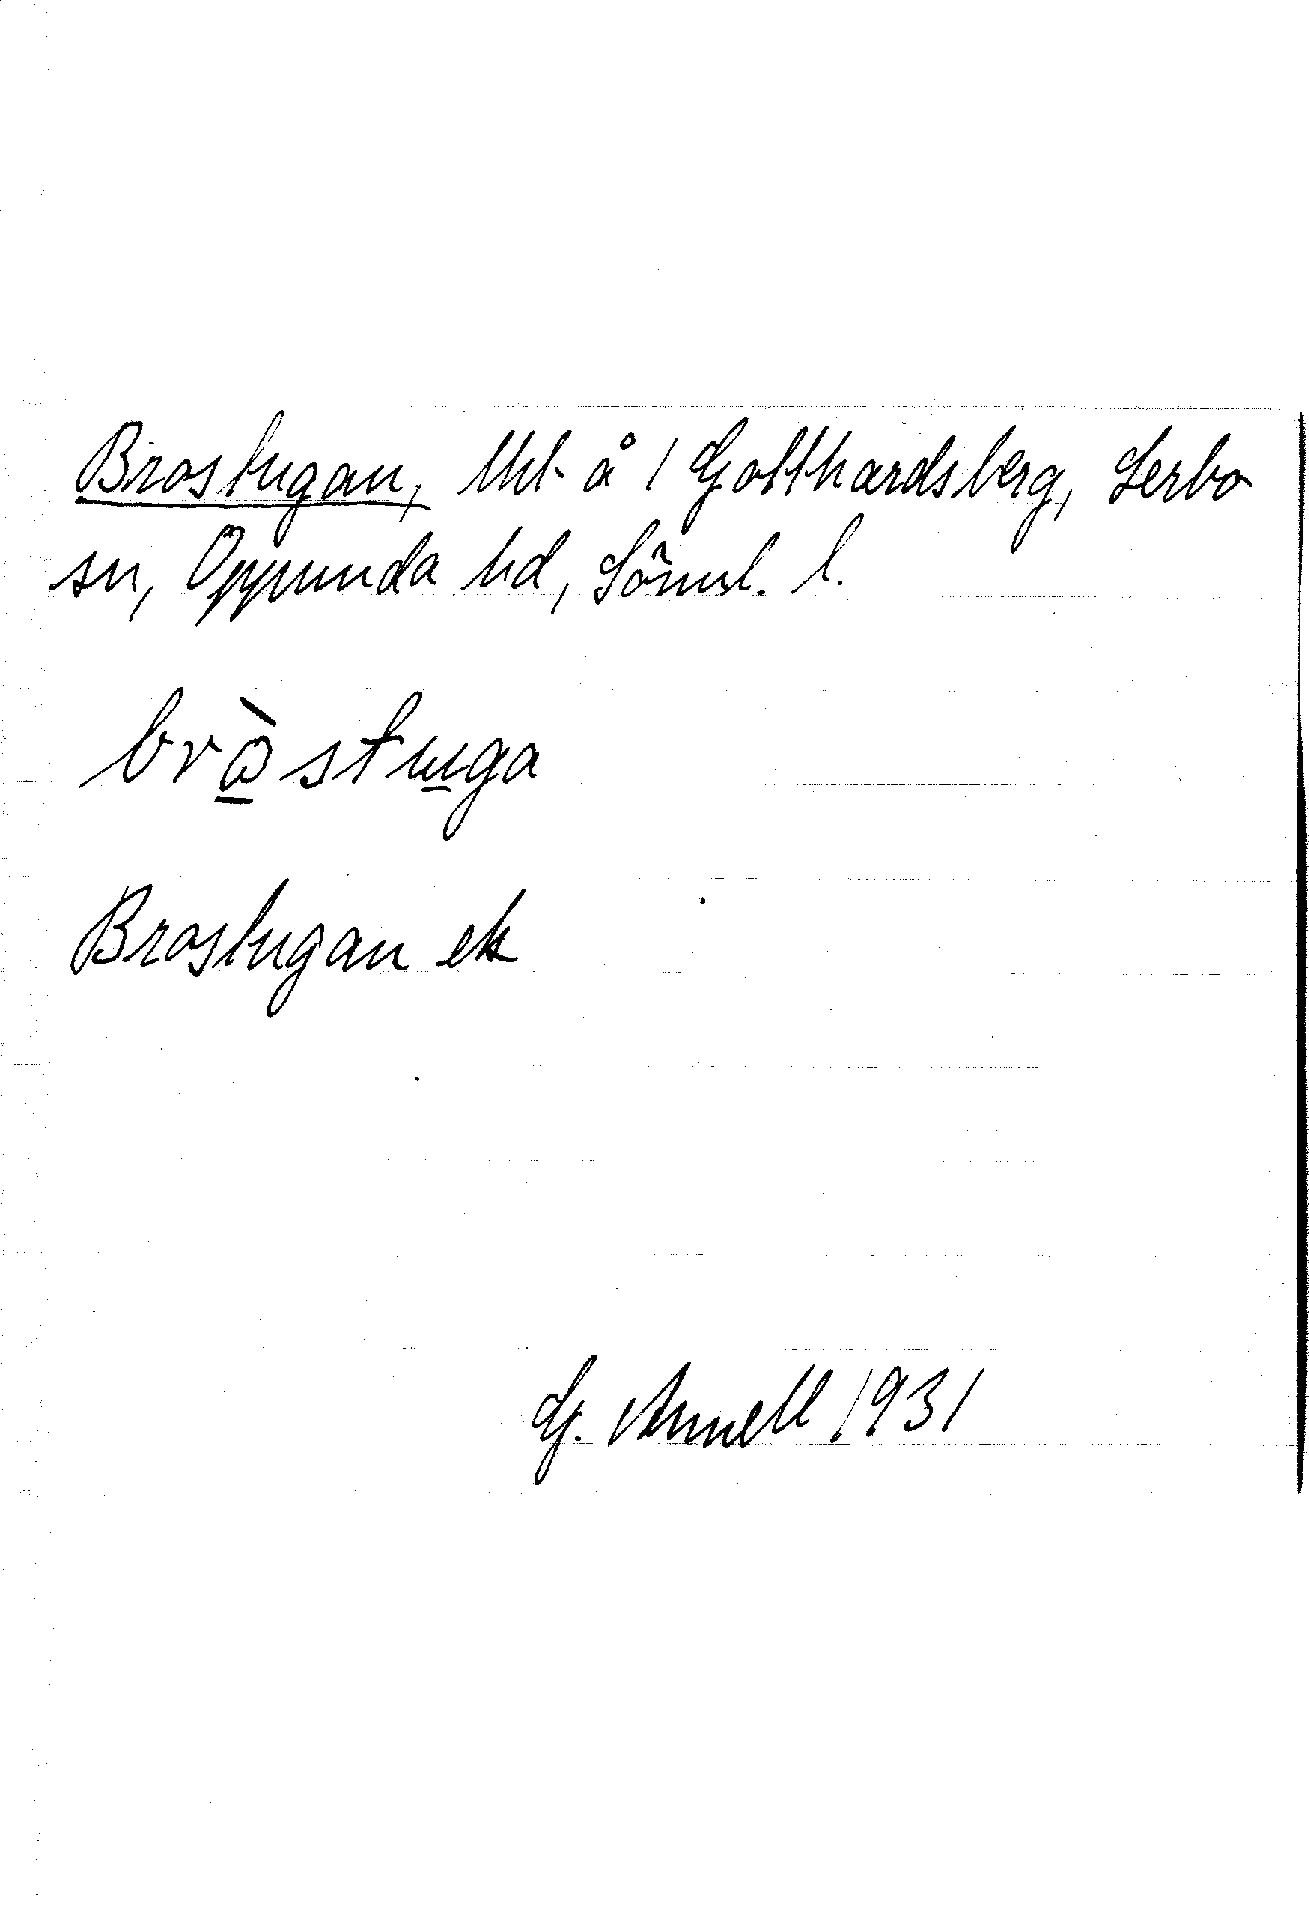 Brostugan, lht å 1 Gotthardsberg, Lerbo
sn, Oppunda hd, Söml. l.
bròstuga
Brostugan ek
G. Arnell 1931